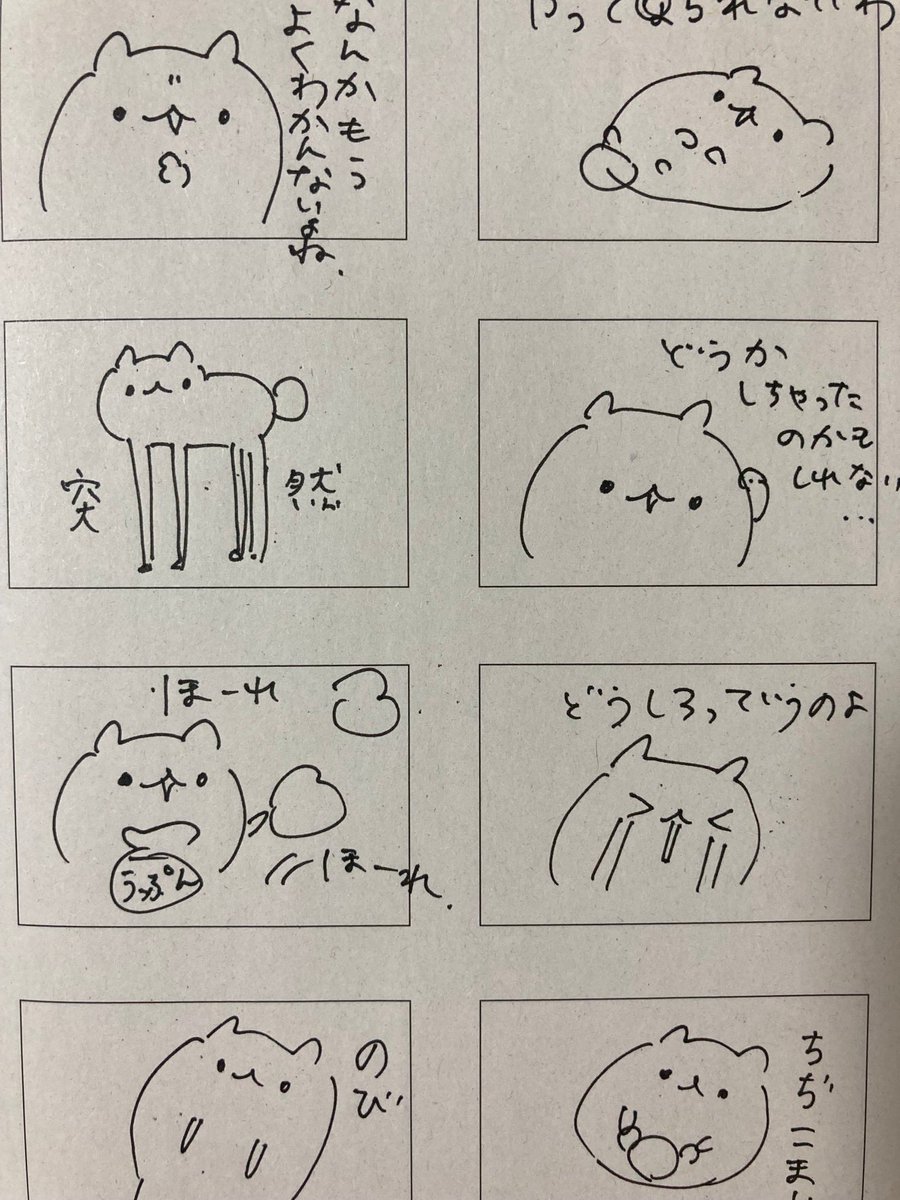 なんかもう
よくわかんないよね.
やって見られないわ
突然
どうか
しちゃった
のかも
しれない
...
ほーれ
うっぷん
ほーれ.
どうしろっていうのよ
のび
ちぢこま